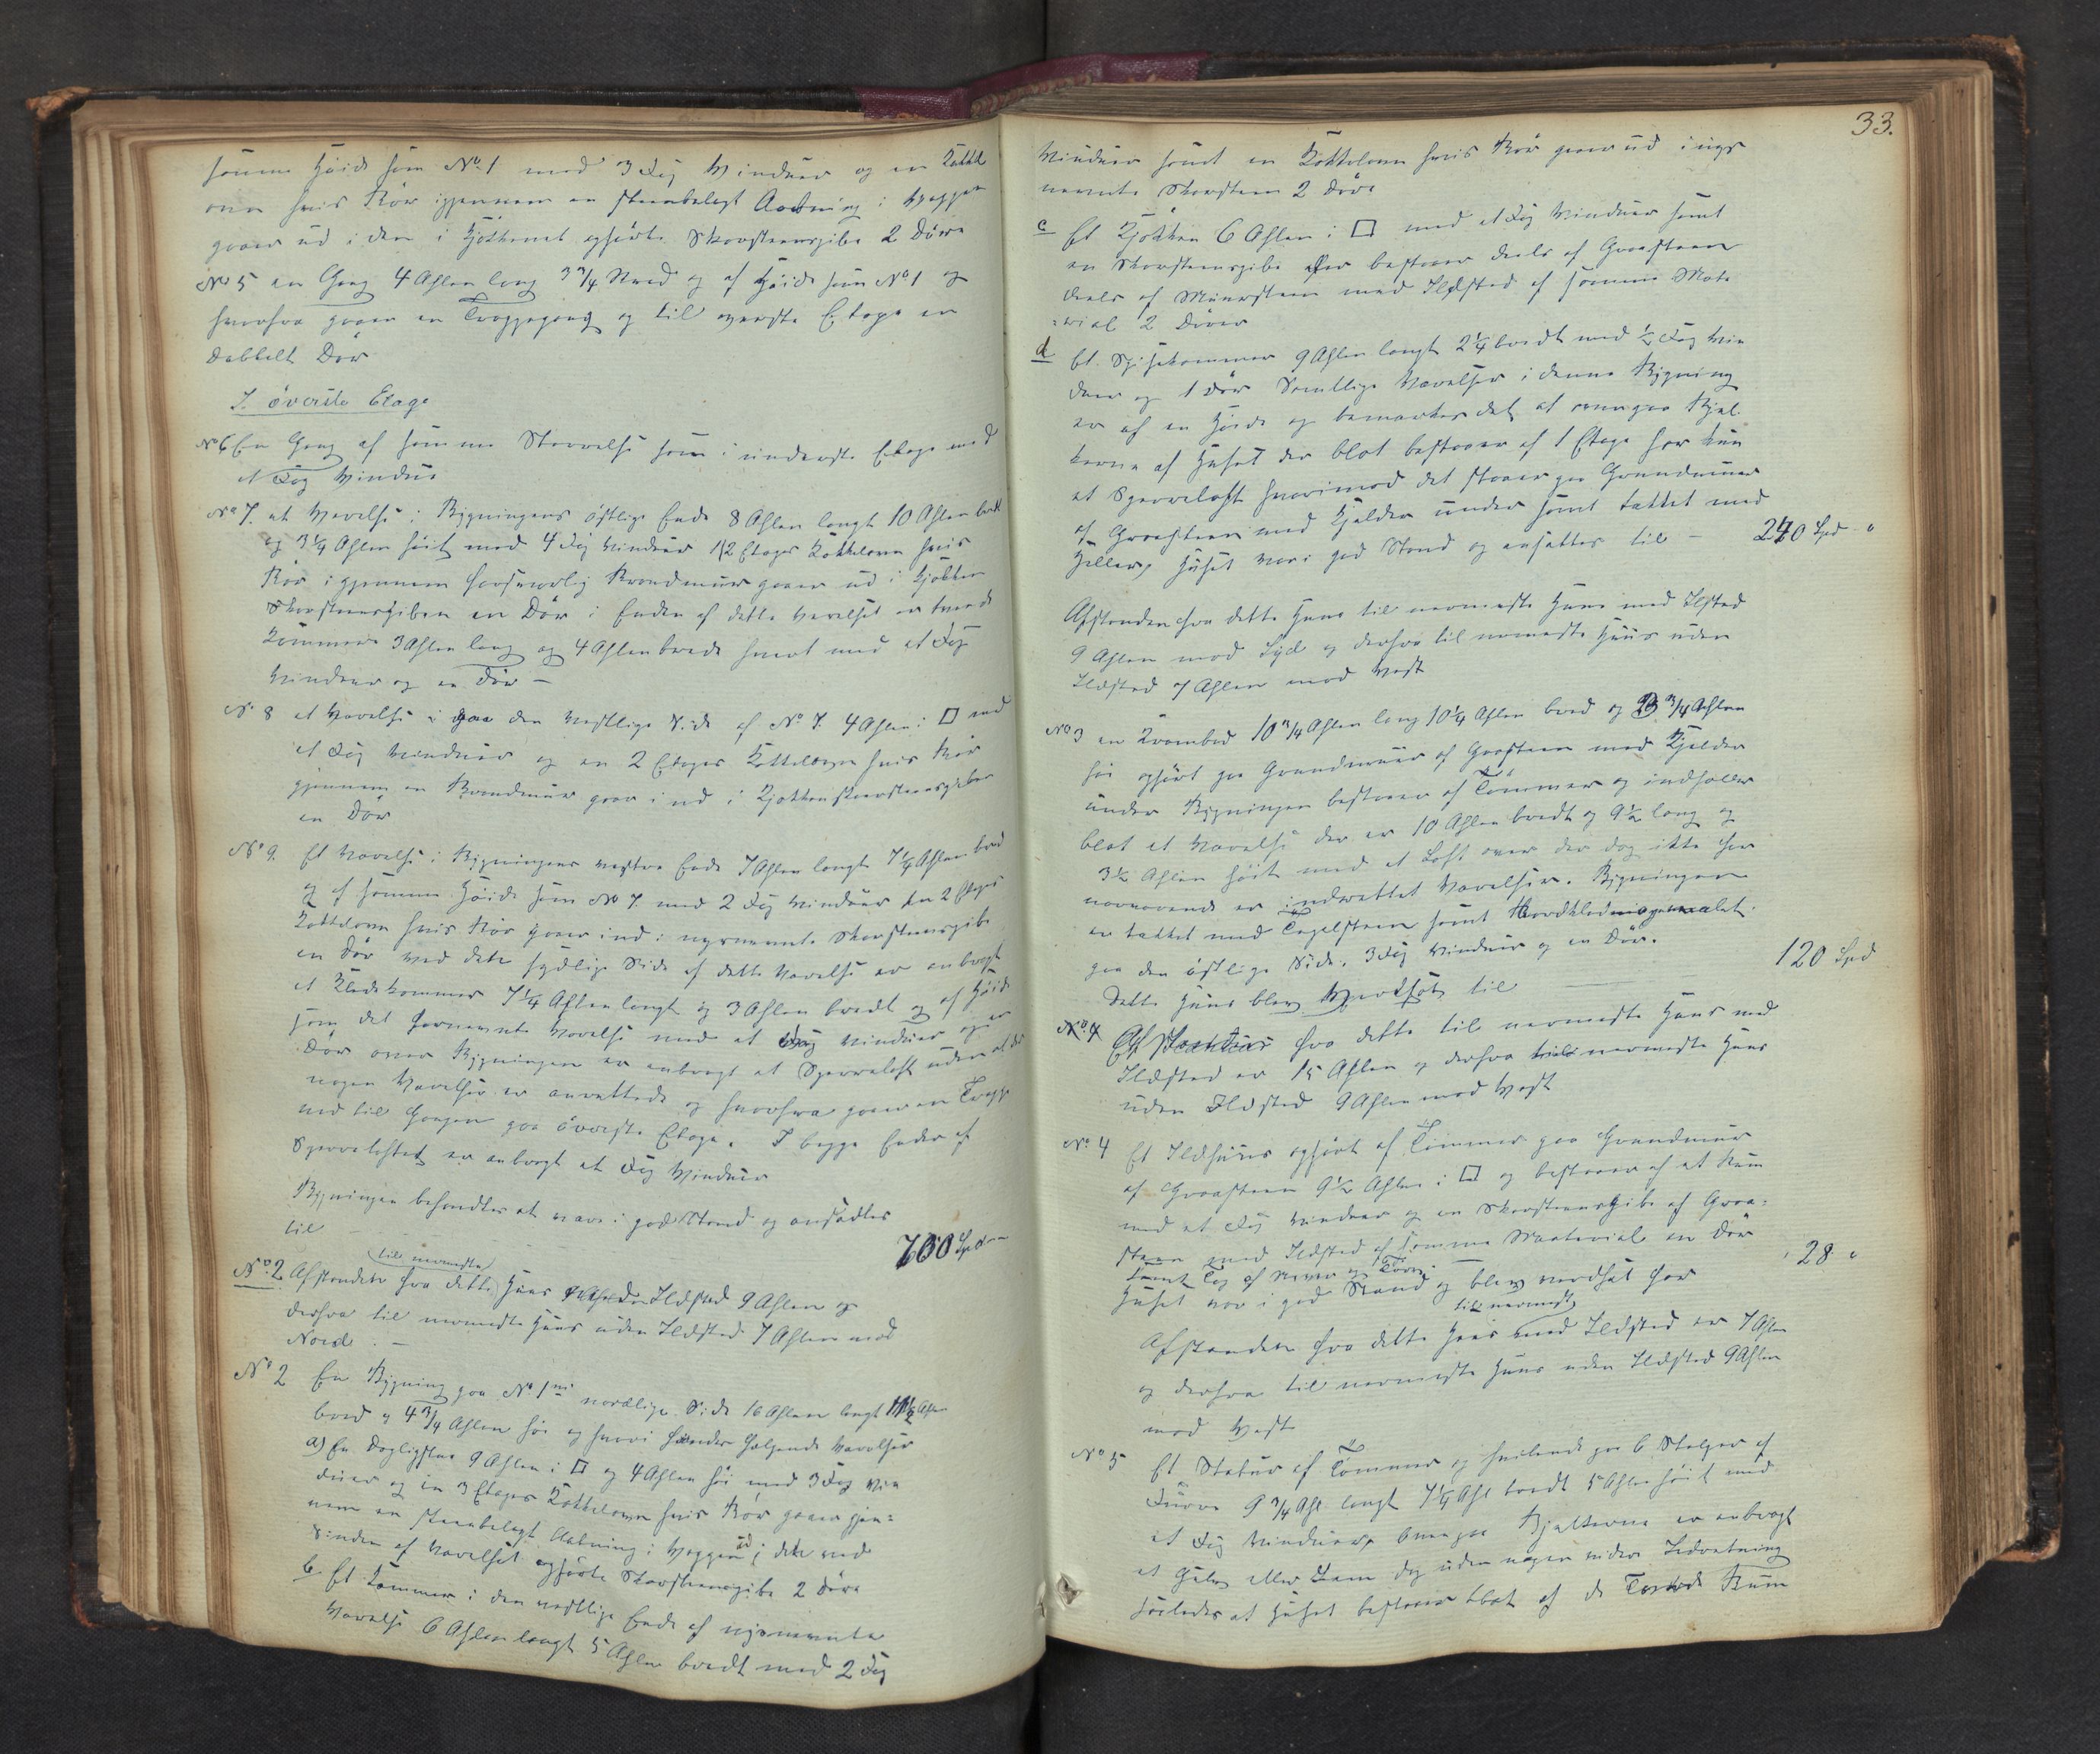 samme Høide som No 1 med 3 Fag Vinduer og en Kakkel
ovn hvis Rør igjennem en steenbelagt Aabning i Væggen
gaaer ud i den i Kjøkkenet opførte Skorsteenspibe 2 Døre
No 5 en Gang 4 Ahlen lang 3 3/4 bred og af Høide som No 1 og
hvorfra gaaer en Trappegang og til øverste Etage en
dobbelt Dør
I øverste Etage
No 6 En Gang af samme Størrelse som i underste Etage med
et Fag Vindue
No 7. et Værelse i Bygningens østlige Ende 8 Ahlen langt 10 Ahlen bredt
og 3 1/4 Ahlen høit med 4 Fag Vinduer 1 2 Etages Kakkelovn hvis
Rør igjennem forsvarlig Brandmuur gaaer ud i Kjøkken
Skorsteenspiben en Dør i Enden af dette Værelse er tvende
Kammere 3 Ahlen lang og 4 Ahlen brede hvert med et Fag
Vinduer og en Dør –
No 8 et Værelse i paa den vestlige Side af No 7. 4 Ahlen i □ med
et Fag Vinduer og en 2 Etages Kakkelovn hvis Rør
gjennem en Brandmuur gaaer ud i Kjøkkenskorsteenspiben
en Dør
No 9. Et Værelse i Bygningens vestre Ende 7 Ahlen langt 7 1/4 Ahlen bred
og af samme Høide som No 7 med 2 Fag Vinduer en 2 Etages
Kakkelovn hvis Rør gaaer ind i nysnævnte Skorsteenspibe
en Dør ved den sydlige Side af dette Værelse er anbragt
et Klædekammer 7 1/4 Ahlen langt og 3 Ahlen bredt og af Høide
som det fornævnte Værelse med et Fag Vinduer og en
Dør over Bygningen er anbragt et Sperreloft uden at der
nogen Værelser er anrettede og hvorfra gaaer en Trappe
ned til Gangen paa øverste Etage. I begge Ender af
Sperreloftet er anbragt et Fag Vinduer
Bygningen befandtes at være i god Stand og ansattes
til – 700 Spd
til nærmeste
No. 2 Afstanden fra dette Huus Ildsted 9 Ahlen og
derfra til nærmeste Huus uden Ildsted 7 Ahlen mod
Nord. –
No 2 En Bygning paa No 1 nordlige Side 16 Ahlen langt 11 1/2 Ahlen
bred og 4 3/4 Ahlen høi og hvori findes følgende Værelser
a) En Dagligstue 9 Ahlen i □ og 4 Ahlen høi med 3 Fag Vin
duer og en 3 Etages Kakkelovn hvis Rør gaaer gjen=
nem en steenbelagt Aabning i Væggen ud i den ved
Siden af Værelset opførte Skorsteenspibe 2 Døre
b. Et Kammer i den vestlige Ende af nysnævnte
Værelse 6 Ahlen langt 5 Ahlen bredt med 2 Fag
33.
Vinduer samt en Kakkelovn hvis Rør gaaer ud i nys
nævnte Skorsteen 2 Døre
c Et Kjøkken 6 Ahlen i □ med et Fag Vinduer samt
en Skorsteenspibe der bestaaer deels af Graasteen
deels af Muursteen med Ildsted af samme Mate
=rial 2 Døre
d Et Spisekammer 9 Ahlen langt 2 1/4 bredt med 1/2 Fag Vin
duer og 1 Dør Samtlige Værelser i denne Bygning
er af en Høide og bemærkes det at ovenpaa Bjel
kerne af Huset der blot bestaaer af 1 Etage har kun
et Sperreloft hvorimod det staaer paa Grundmuur
af Graasteen med Kjelder under samt tækket med
Heller, Huset var i god Stand og ansattes til – 240 Spd
Afstanden fra dette Huus til nærmeste Huus med Ildsted
9 Ahlen mod Syd og derfra til nærmeste Huus uden
Ildsted 7 Ahlen mod Vest
No 3 en Krambod 10 3/4 Ahlen lang 10 1/4 Ahlen bred og 3 3/4 Ahlen
høi opført paa Grundmuur af Graasteen med Kjelder
under Bygningen bestaaer af Tømmer og indholder
blot et Værelse der er 10 Ahlen bredt og 9 1/2 lang og
3 1/2 Ahlen høit med et Loft over der dog ikke for
nærværende er indrættet Værelser. Bygningen
er tækket med Tagelsteen samt bordklædt og malet
paa den østlige Side. 3 Fag Vinduer og en Dør.
Dette Huus blev værdsat til – 120 Spd
No. 4 Afstanden fra dette til nærmeste Huus med
Ildsted er 15 Ahlen og derfra til nærmeste Huus
uden Ildsted 9 Ahlen mod Vest
No. 4 Et Ildhuus opført af Tømmer paa Grundmuur
af Graasteen 9 1/2 Ahlen i □ og bestaaer af et Rum
med et Fag Vinduer og en Skorsteenspibe af Graa=
steen med Ildsted af samme Material en Dør
samt Tag af Næver og Tørv.
Huset var i god Stand og blev værdsat for 28
til nærmeste
Afstanden fra dette Huus med Ildsted er 7 Ahlen
og derfra til nærmeste Huus uden Ildsted 9 Ahlen
mod Vest
No 5 Et Stabur af Tømmer og hvilende paa 6 Stolper af
Furu 9 3/4 Ahl. langt 7 1/4 Ahl bredt 5 Ahlen høit med
et Fag Vinduer, ovenpaa Bjelkerne er anbragt
et Gulv eller Lem dog uden nogen videre Indretning
saaledes at Huset bestaaer blot af de tvende Rum